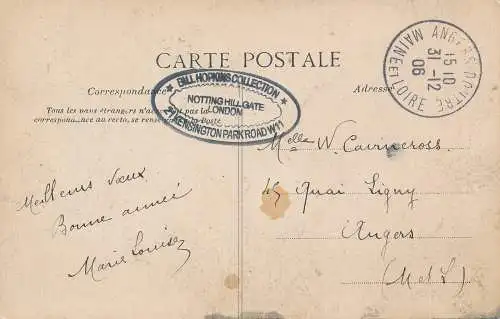 CARTE POSTALE
Correspondance
Adresse
Tous les pays étrangers n'a pas la
correspondance au recto, se rens à la Poste
BILL HOPKINS COLLECTION
NOTTING HILL GATE
LONDON
KENSINGTON PARK ROAD W11
ANGERS
15 10
31 -12
06
MAINE ET LOIRE
Meilleurs vœux
Bonne année
Marie Louise
Melle W. Cairncross
45 Quai Ligny
Angers
(M et L)